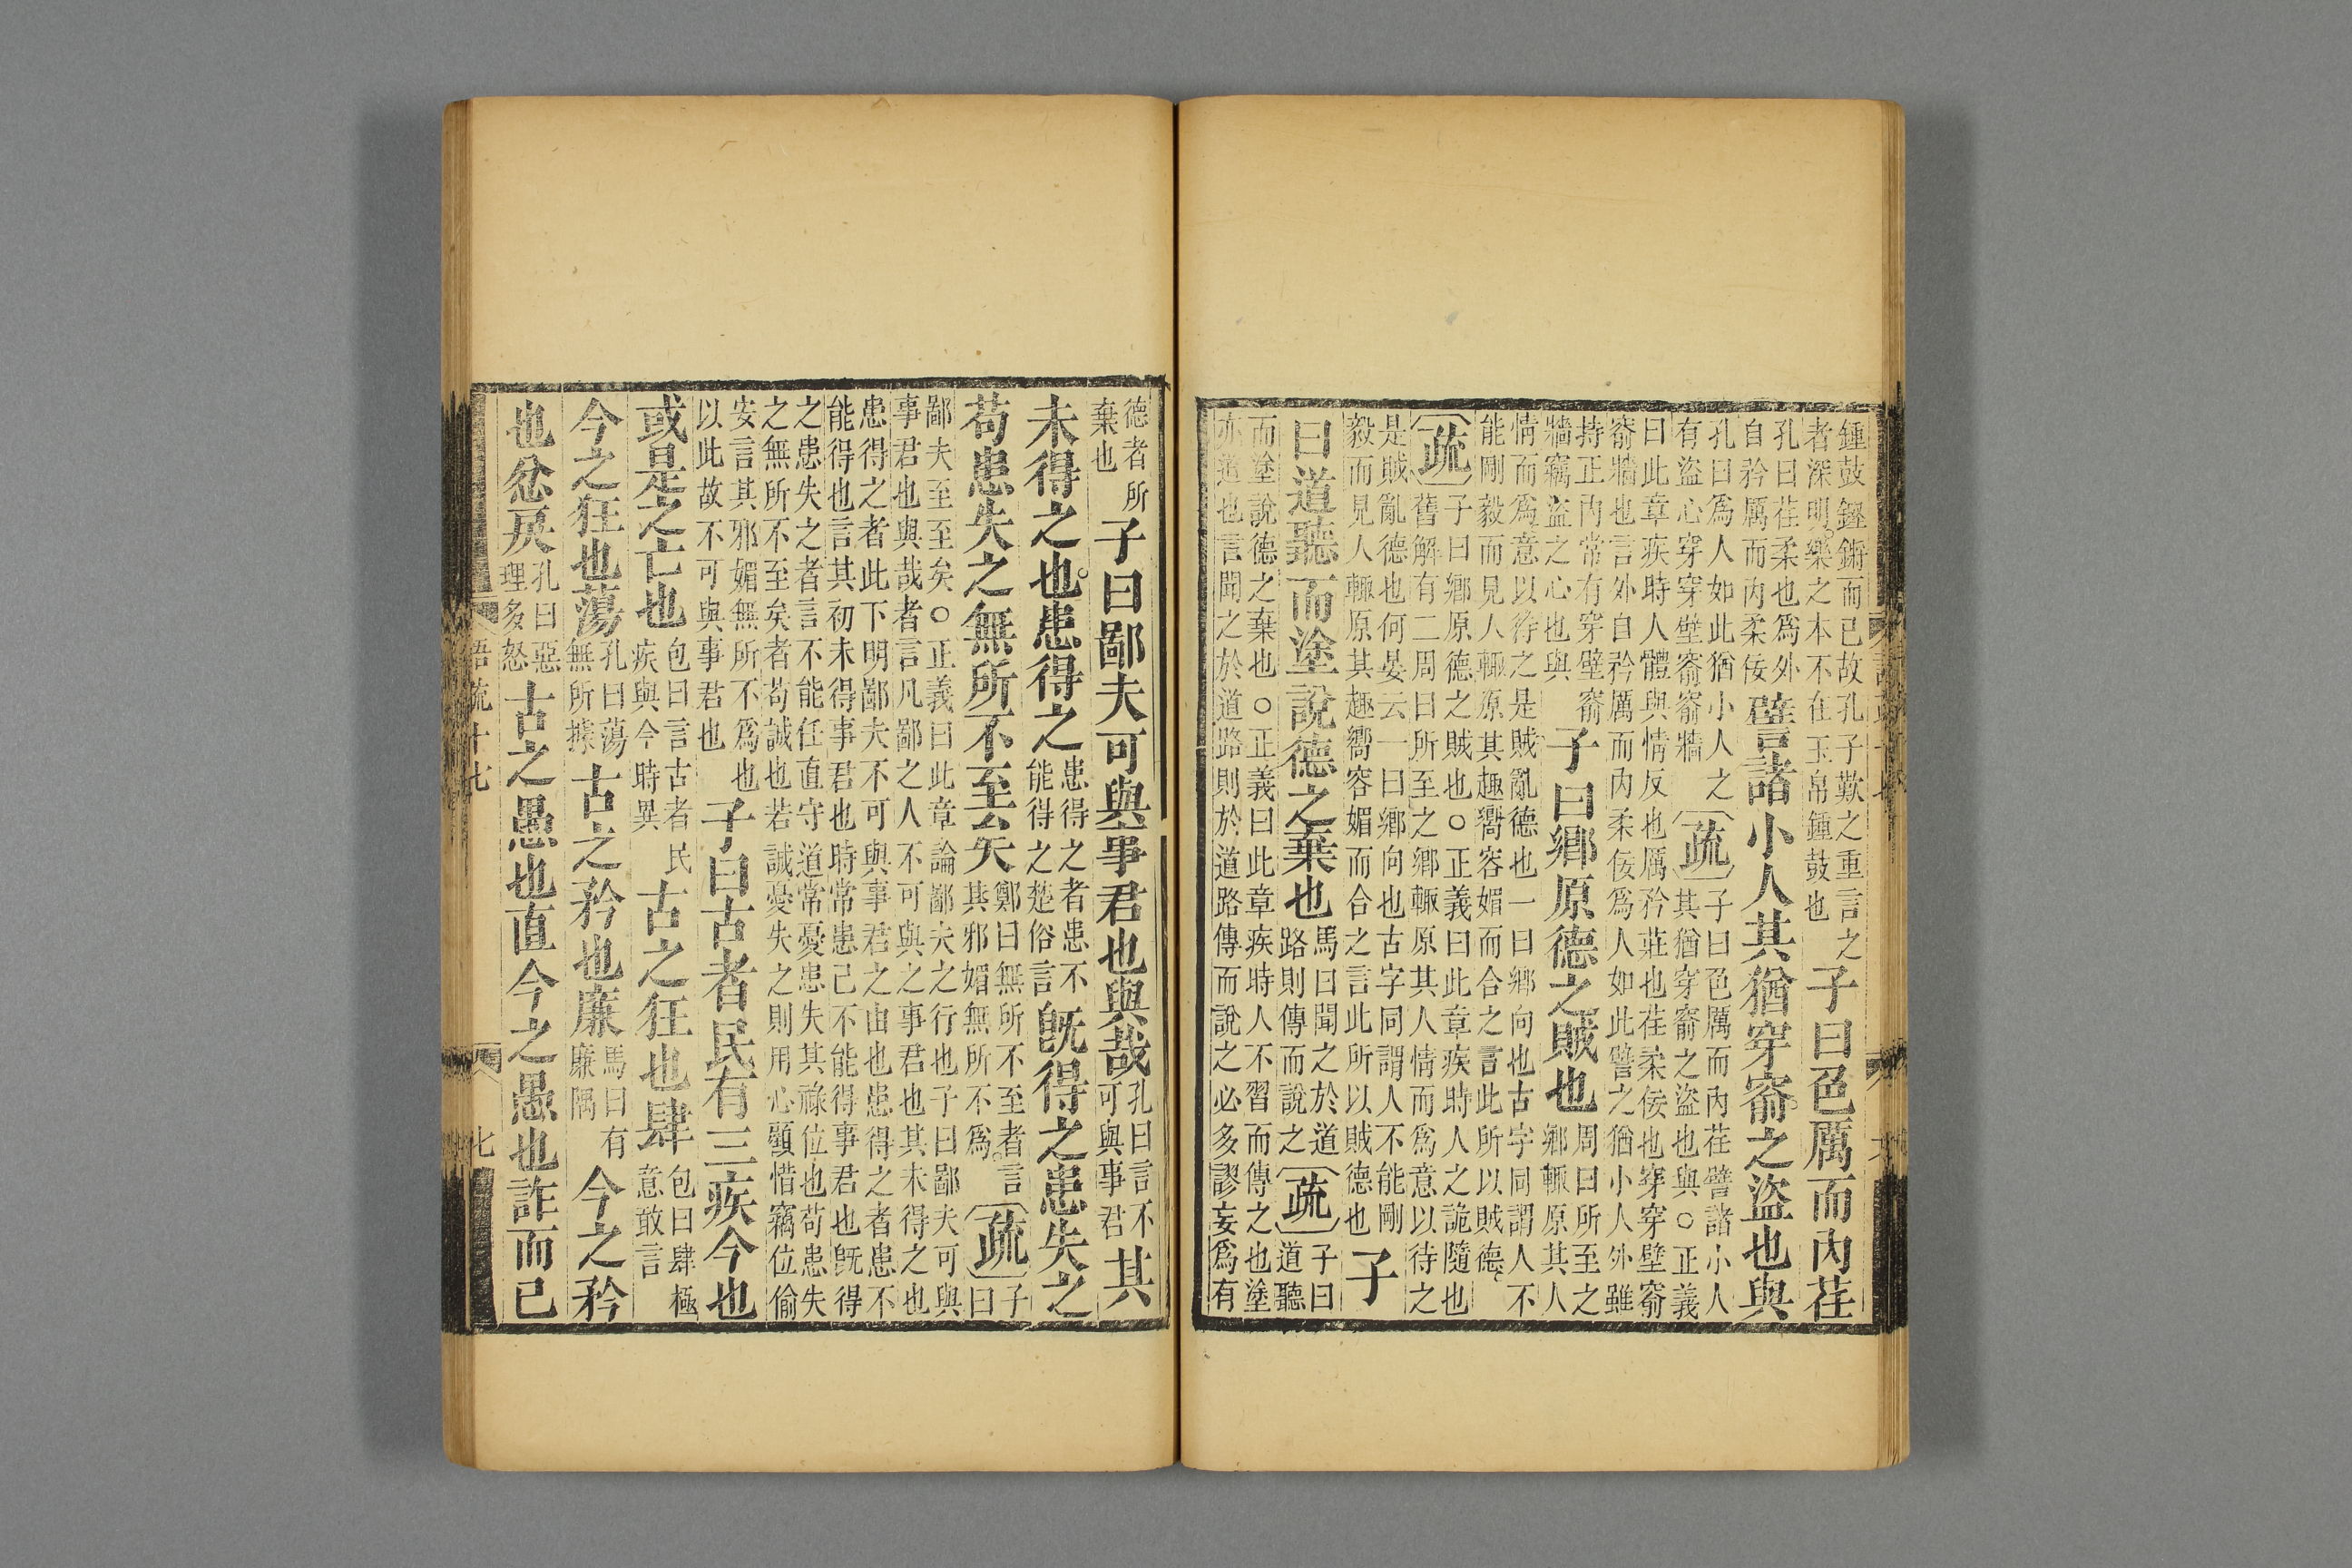 鍾鼓鏗鏘而已故孔子歎之重言之
者深明樂之本不在玉帛鍾鼓也
子曰色厲而內荏
孔曰荏柔也爲外
自矜厲而內柔佞
譬諸小人其猶穿窬之盜也與
孔曰爲人如此猶小人之
有盜心穿穿壁窬窬牆
疏
子曰色厲而內荏譬諸小人
其猶穿窬之盜也與○正義
曰此章疾時人體與情反也厲矜莊也荏柔佞也穿穿壁窬
窬牆也言外自矜厲而內柔佞爲人如此譬之猶小人外雖
持正內常有穿壁窬
牆竊盜之心也與
子曰鄉原德之賊也
周曰所至之
鄉輒原其人
情而爲意以待之是賊亂德也一曰鄉向也古字同謂人不
能剛毅而見人輒原其趣嚮容媚而合之言此所以賊德
疏
子曰鄉原德之賊也○正義曰此章疾時人之詭隨也
舊解有二周曰所至之鄉輒原其人情而爲意以待之
是賊亂德也何晏云一曰鄉向也古字同謂人不能剛
毅而見人輒原其趣嚮容媚而合之言此所以賊德也
子
曰道聽而塗說德之棄也
馬曰聞之於道
路則傳而說之
疏
子曰
道聽
而塗說德之棄也○正義曰此章疾時人不習而傳之也塗
亦道也言聞之於道路則於道路傳而說之必多謬妄爲有
德者所
棄也
子曰鄙夫可與事君也與哉
孔曰言不
可與事君
其
未得之也患得之
患得之者患不
能得之楚俗言
旣得之患失之
苟患失之無所不至矣
鄭曰無所不至者言
其邪媚無所不爲
疏
子
曰
鄙夫至至矣○正義曰此章論鄙夫之行也子曰鄙夫可與
事君也與哉者言凡鄙之人不可與之事君也其未得之也
患得之者此下明鄙夫不可與事君之由也患得之者患不
能得也言其初未得事君也時常患己不能得事君也旣得
之患失之者言不能任直守道常憂患失其祿位也苟患失
之無所不至矣者苟誠也若誠憂失之則用心顧惜竊位偷
安言其邪媚無所不爲也
以此故不可與事君也
子曰古者民有三疾今也
或是之亡也
包曰言古者民
疾與今時異
古之狂也肆
包曰肆極
意敢言
今之狂也蕩
孔曰蕩
無所據
古之矜也廉
馬曰有
廉隅
今之矜
也忿戾
孔曰惡
理多怒
古之愚也直今之愚也詐而已
語疏十七
七